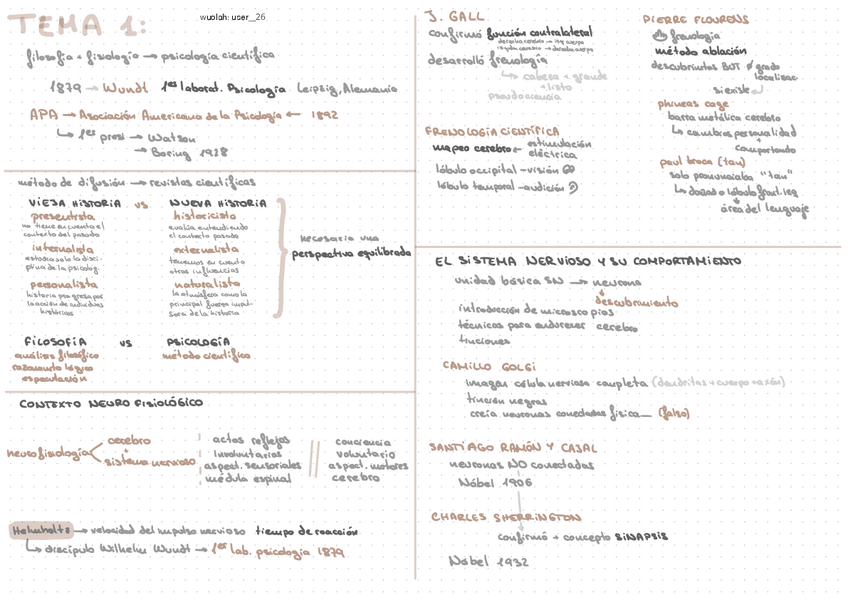 TEMA 1:
wuolah: user_26
filosofía + fisiología → psicología científica
1879 → Wundt 1er laborat. Psicología Leipzig, Alemania
APA → Asociación Americana de la Psicología ← 1892
↳ 1er presi → Watson
→ Boring 1928
método de difusión → revistas científicas
VIEJA HISTORIA vs NUEVA HISTORIA
presentista
no tiene en cuenta el
contexto del pasado
internalista
estudia solo la disci-
plina de la psicolog.
personalista
historia progresa por
la acción de individuos
históricos
historicista
evalúa entendiendo
el contexto pasado
externalista
tenemos en cuenta
otras influencias
naturalista
la atmósfera como la
principal fuerza impul-
sora de la historia
necesaria una
perspectiva equilibrada
FILOSOFÍA vs PSICOLOGÍA
análisis filosófico
razonamiento lógico
especulación
método científico
CONTEXTO NEUROFISIOLÓGICO
neurofisiología
cerebro
+
sistema nervioso
actos reflejos
involuntarios
aspect. sensoriales
médula espinal
conciencia
voluntario
aspect. motores
cerebro
Helmholtz → velocidad del impulso nervioso tiempo de reacción
↳ discípulo Wilhelm Wundt → 1er lab. psicología 1879
J. GALL
confirmó función contralateral
desarrolló frenología
↳ cabeza + grande
+ listo
pseudociencia
FRENOLOGÍA CIENTÍFICA
mapeo cerebro ← estimulación
eléctrica
lóbulo occipital → visión
lóbulo temporal → audición
PIERRE FLOURENS
frenología
método ablación
phineas gage
barra metálica cerebro
↳ cambios personalidad
+
comportando
paul broca (tan)
solo pronunciaba "tan"
↳ dañado lóbulo front. izq
área del lenguaje
EL SISTEMA NERVIOSO Y SU COMPORTAMIENTO
unidad básica SN → neurona
descubrimiento
introducción de microscopios
técnicas para endurecer cerebro
tinciones
CAMILLO GOLGI
imagen célula nerviosa completa (dendritas + cuerpo + axón)
tinción negras
creía neuronas conectadas física— (falso)
SANTIAGO RAMÓN Y CAJAL
neuronas NO conectadas
Nóbel 1906
CHARLES SHERRINGTON
confirmó + concepto SINAPSIS
Nóbel 1932